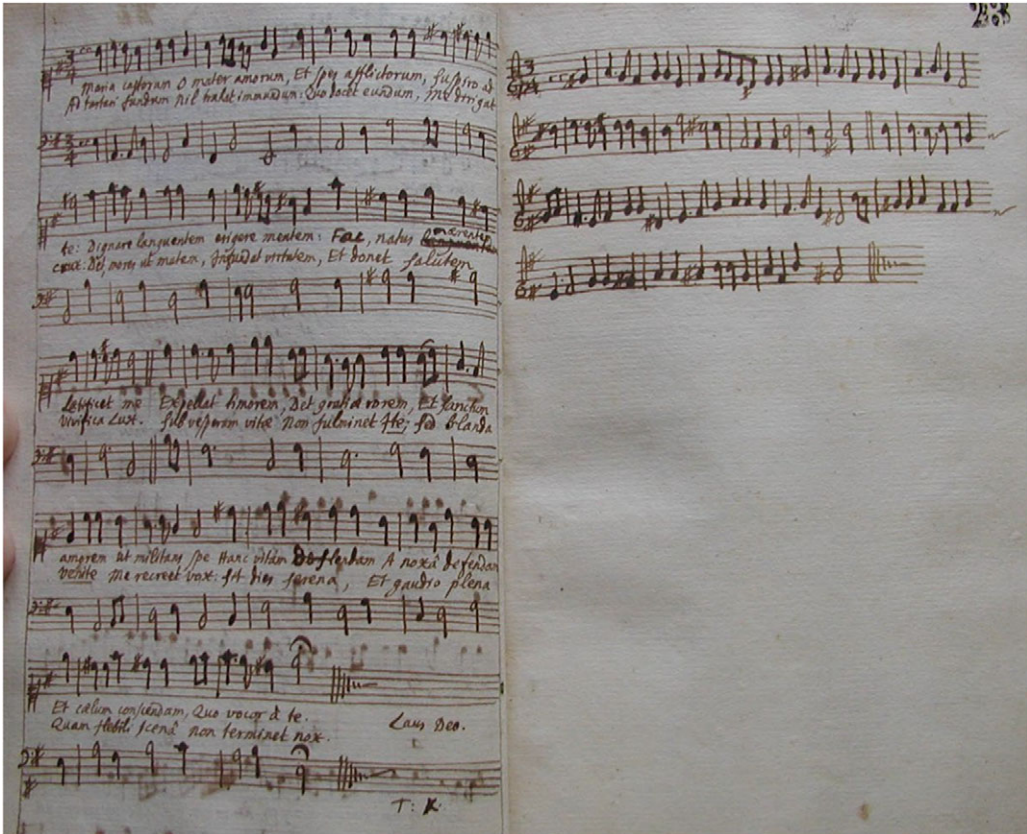 Maria castorum O mater amorum, Et spes afflictorum, suspiro ad
Ad tartari fundum nil trahat immundum: Quo docet eundum, me dirigat
te: Dignare languentem erigere mentem: Fac, natus mærentem
crux: Det mores ut mutem, Et donet salutem
Lætificet me Expellat timorem, Det gratiæ rorem, Et sanctum
vivifica Lux. Sub vesperam vitæ Non fulminet Ite; sed blanda
amorem ut militans spe Hanc vitam A noxâ defendam
venite Me recreet vox: sit dies serena, Et gaudio plena
Et cælum conscendam, Quo vocor à te.
Quam flebili scenâ non terminet nox.
Laus Deo.
T: K.